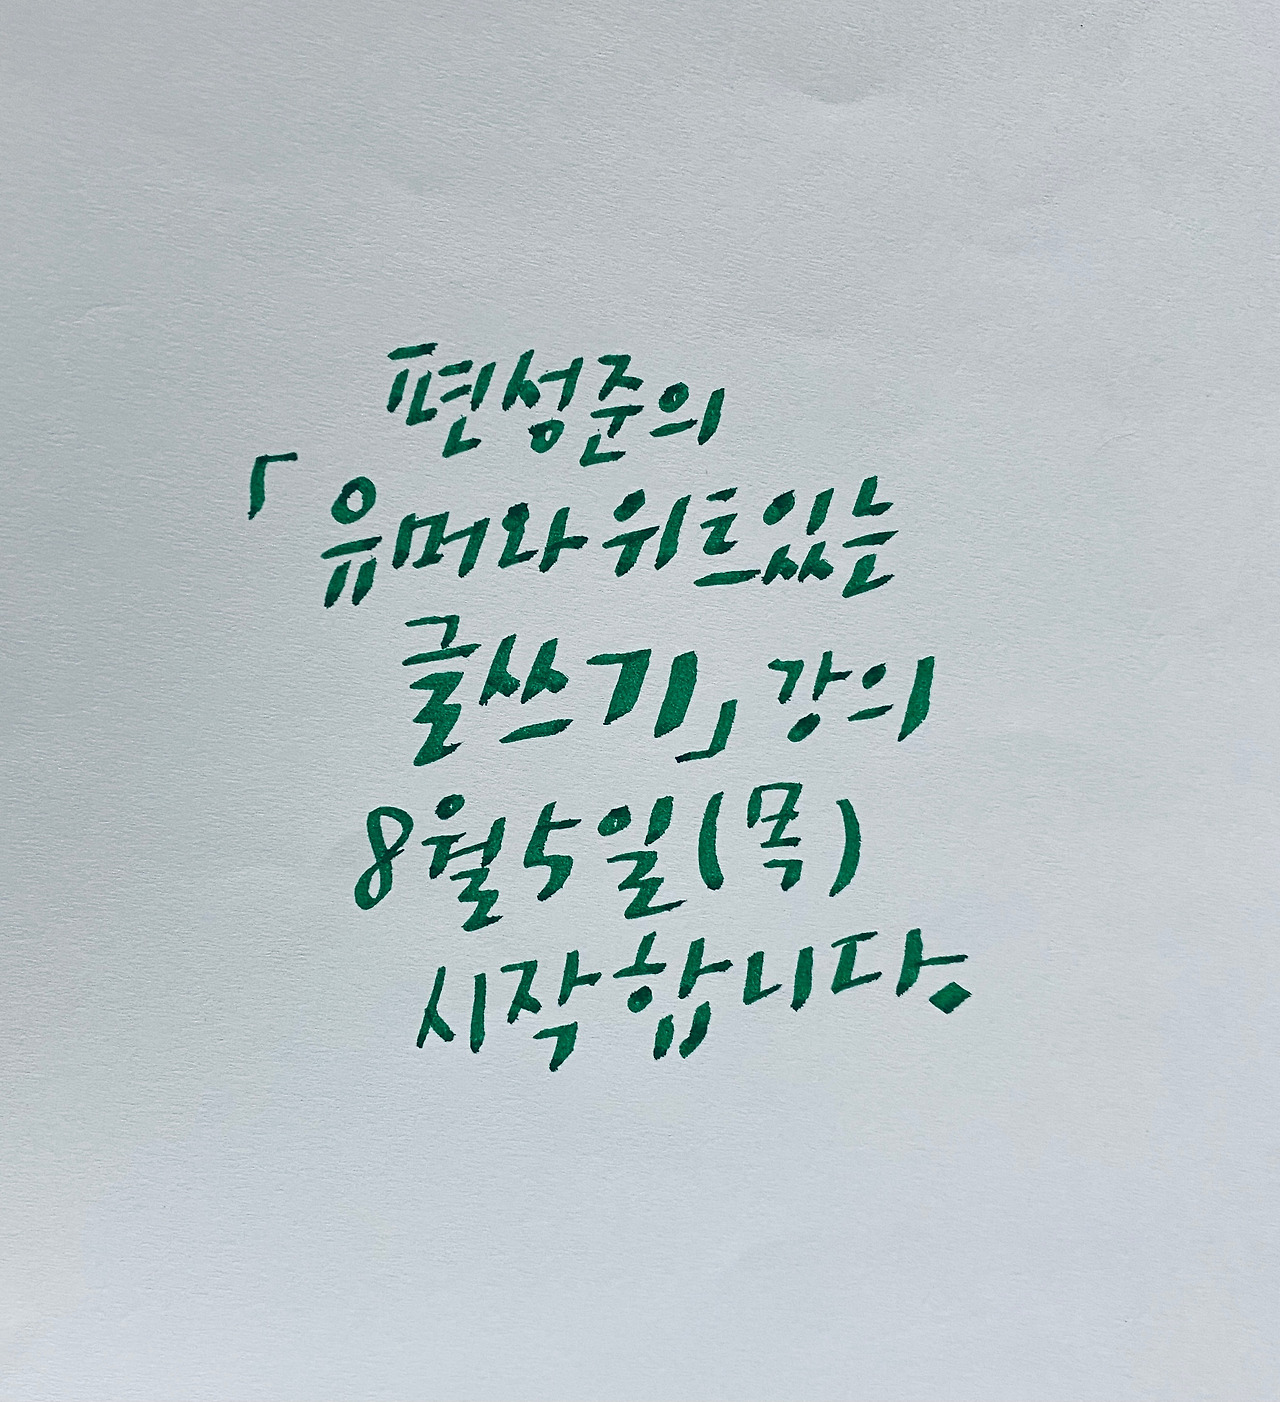 편성준의
「유머와 위트있는
글쓰기」 강의
8월 5일(목)
시작합니다.